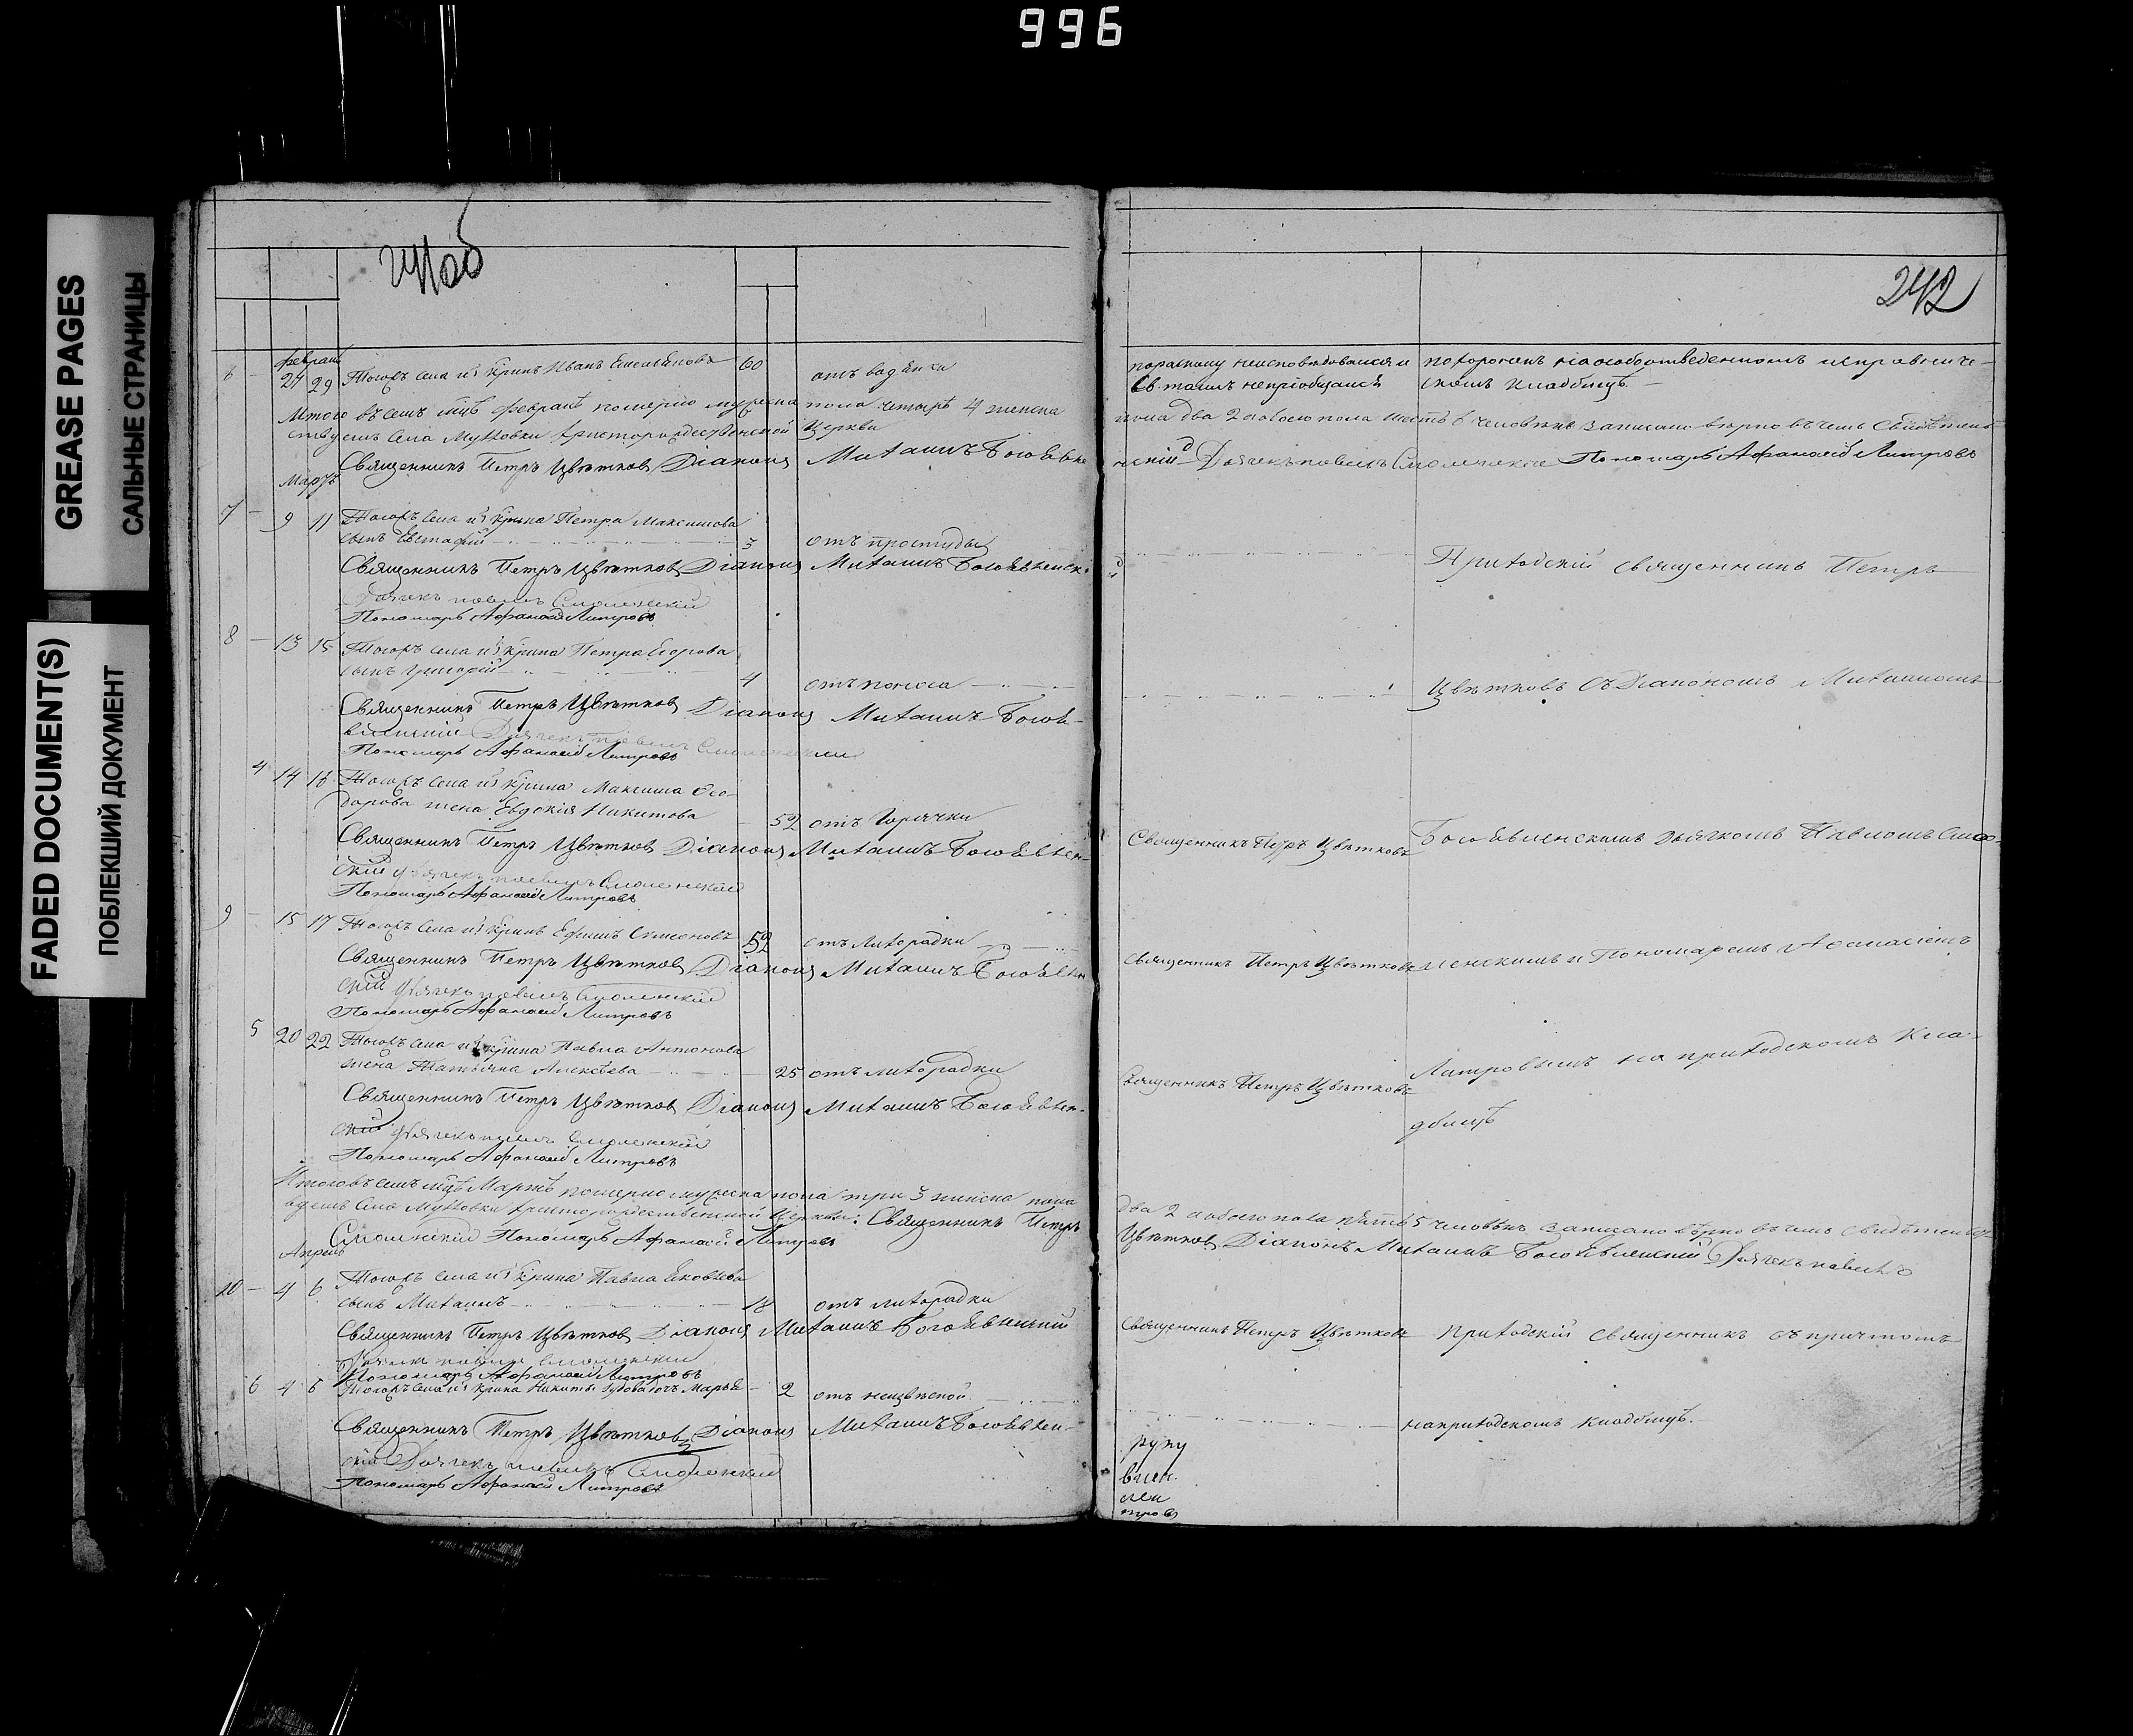 996
GREASE PAGES
САЛЬНЫЕ СТРАНИЦЫ
FADED DOCUMENT(S)
ПОБЛЕКШИЙ ДОКУМЕНТ
241об
242
6 – Февраль 27 29 Тогожъ села и крнъ Иванъ Емельяновъ 60 отъ водянки
по расколу неисповѣдовался и похороненъ на особоотведенномъ
Св. таинъ непріобщался кладбищѣ. –
Итого въ семъ мцѣ Февралѣ померло мужеска пола четыре 4 женска
пола два 2 а обоего пола шесть 6 человѣкъ записано вѣрно въ чемъ
села Мужовки Христорождественской Церкви
Священникъ Петръ Цвѣтковъ Діаконъ Михаилъ Богоявле
нскій Дьячекъ Павелъ Смоленскій Пономарь Афанасій Литровъ
Мартъ
7 – 9 11 Тогожъ села и крнна Петра Максимова
сынъ Евстафій 3 отъ простуды
Священникъ Петръ Цвѣтковъ Діаконъ Михаилъ Богоявленск.
Приходскій священникъ Петръ
Дьячекъ Павелъ Смоленскій
Пономарь Афанасій Литровъ
8 – 13 15 Тогожъ села и крнна Петра Егорова
сынъ Григорій 4 отъ поноса
Цвѣтковъ съ Діакономъ Михаиломъ
Священникъ Петръ Цвѣтковъ Діаконъ Михаилъ Богоя-
вленскій Дьячекъ Павелъ Смоленскій
Пономарь Афанасій Литровъ
4 14 16 Тогожъ села и крнна Максима Ѳео-
дорова жена Евдокія Никитова 52 отъ Горячки
Священникъ Петръ Цвѣтковъ Діаконъ Михаилъ Богоявлен-
Священникъ Петръ Цвѣтковъ Богоявленскимъ дьячкомъ Павломъ Смо-
скій Дьячекъ Павелъ Смоленскій
Пономарь Афанасій Литровъ
9 – 15 17 Тогожъ села и крнъ Ефимъ Симеоновъ 52 отъ лихорадки
Священникъ Петръ Цвѣтковъ Діаконъ Михаилъ Богоявлен
Священникъ Петръ Цвѣтковъ ленскимъ и Пономаремъ Афанасіемъ
скій Дьячекъ Павелъ Смоленскій
Пономарь Афанасій Литровъ
5 20 22 Тогожъ села и крнна Павла Антонова
жена Татьяна Алексѣева 25 отъ лихорадки
Священникъ Петръ Цвѣтковъ Литровымъ на приходскомъ кла-
дбищѣ
Священникъ Петръ Цвѣтковъ Діаконъ Михаилъ Богоявлен-
скій Дьячекъ Павелъ Смоленскій
Пономарь Афанасій Литровъ
Итого въ семъ мцѣ Мартѣ померло мужеска пола три 3 женска пола
два 2 а обоего пола пять 5 человѣкъ записано вѣрно въ чемъ
села Мужовки Христорождественской Церкви: Священникъ Петръ
Цвѣтковъ Діаконъ Михаилъ Богоявленскій Дьячекъ Павелъ
Смоленскій Пономарь Афанасій Литровъ
Апрель
10 – 4 6 Тогожъ села и крнна Павла Яковлева
сынъ Михаилъ 18 отъ лихорадки
Священникъ Петръ Цвѣтковъ Діаконъ Михаилъ Богоявленскій
Священникъ Петръ Цвѣтковъ приходскій священникъ съ причтомъ
Дьячекъ Павелъ Смоленскій
Пономарь Афанасій Литровъ
6 4 6 Тогожъ села и крнна Никиты дочь Марья – 2 отъ неизвѣсной
на приходскомъ кладбищѣ.
Священникъ Петръ Цвѣтковъ Діаконъ Михаилъ Богоявлен-
скій Дьячекъ Павелъ Смоленскій
Пономарь Афанасій Литровъ
руку
влен.
лен
тровъ